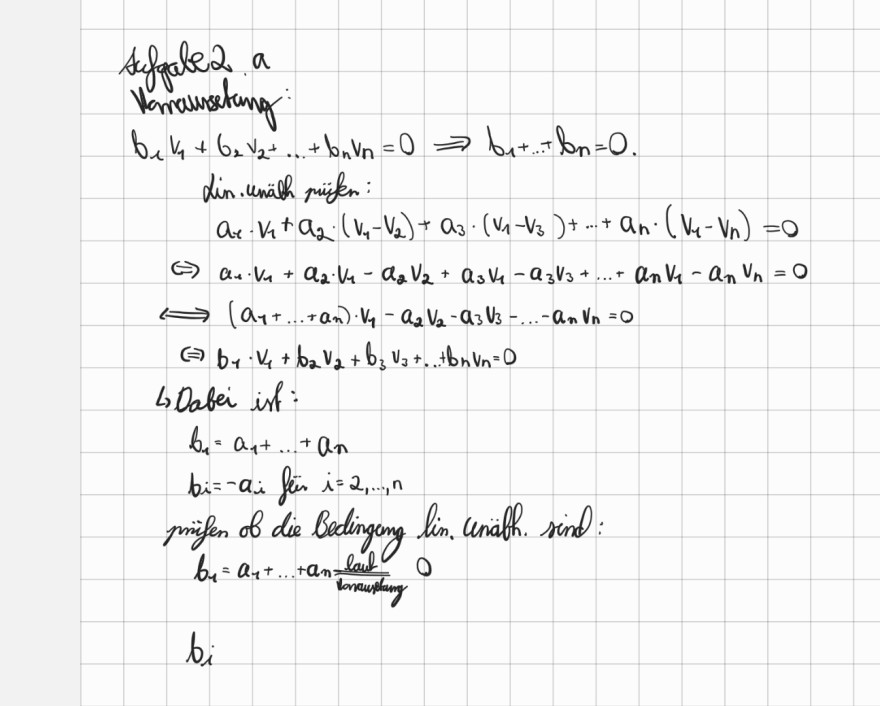 Aufgabe 2 a
Vorraussetzung:
b₁ v₁ + b₂ v₂ + ... + bₙvₙ = 0 ⟹ b₁ + ... + bₙ = 0.
Lin. unäbh prüfen:
a₁ · v₁ + a₂ · (v₁ - v₂) + a₃ · (v₁ - v₃) + ... + aₙ · (v₁ - vₙ) = 0
⟺ a₁ · v₁ + a₂ · v₁ - a₂v₂ + a₃v₁ - a₃v₃ + ... + aₙv₁ - aₙvₙ = 0
⟺ (a₁ + ... + aₙ) · v₁ - a₂v₂ - a₃v₃ - ... - aₙvₙ = 0
⟺ b₁ · v₁ + b₂v₂ + b₃v₃ + ... + bₙvₙ = 0
↳ Dabei ist:
b₁ = a₁ + ... + aₙ
bᵢ = -aᵢ für i = 2, ..., n
prüfen ob die Bedingung lin. unäbh. sind:
b₁ = a₁ + ... + aₙ = laut Vorausetzung 0
bᵢ